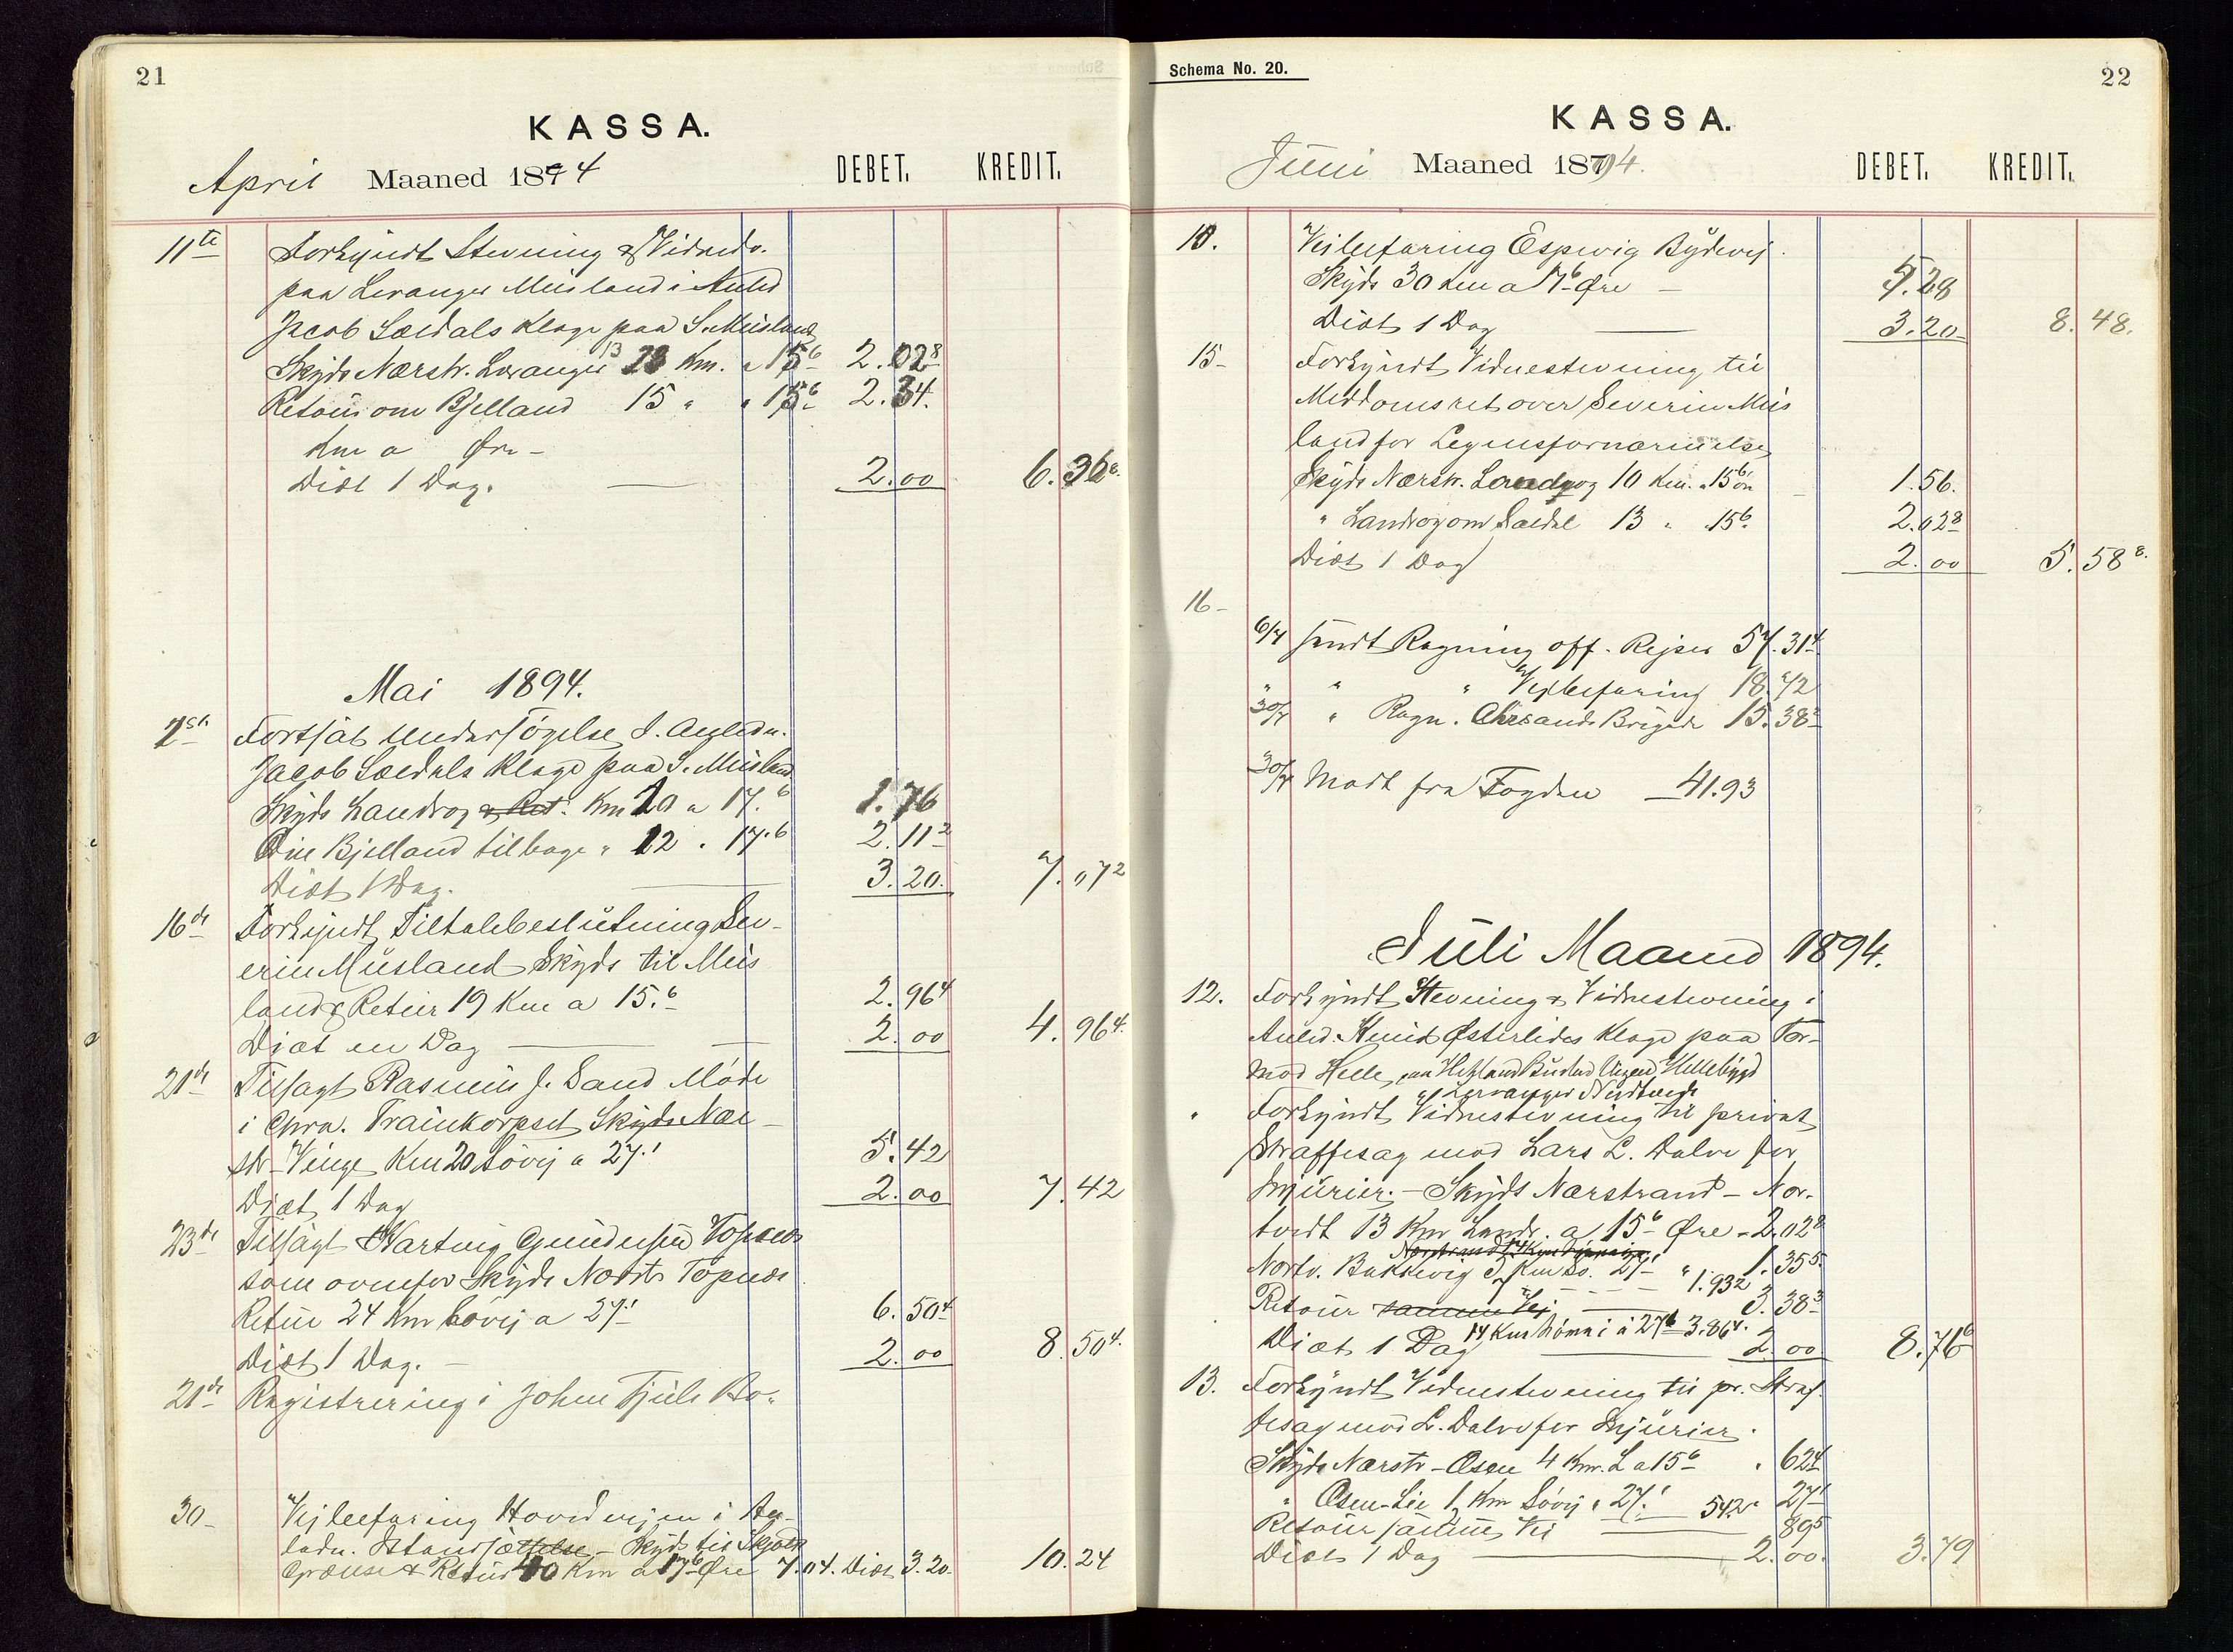 21
KASSA.
April Maaned 1894 DEBET. KREDIT.
11te Forkyndt Stevning & Vidnedo.
paa Levanger Miisland i Anled
Jacob Sældals Klage paa S. Miisland
Skyds Nærstr. Levanger 13 Km. a 15⁶ 2.02⁸
Retour om Bjelland 15 " " 15⁶ 2.34.
Km a Øre -
Diæt 1 Dag. 2.00 6.36⁸
Mai 1894.
Fortsat Undersögelse I. Anledn.
Jacob Sældals Klage paa S. Miisland
Skyds Landvog & Ret. Km 10 a 17.⁶ 1.76
Om Bjelland tilbage " 12 . 17.⁶ 2.11²
Diæt 1 Dag. 3.20. 7.07²
16de Forkyndt Tiltalebeslutning Sev-
erin Miisland Skyds til Miis
land & Retur 19 Km a 15.⁶ 2.96⁴
Diæt en Dag 2.00 4.96⁴
21de Tilsagt Rasmus J. Sand Möde
i Chra. Trainkorpset Skyds Nær-
str - Vinge Km 20 Sövej a 27.¹ 5.42
Diæt 1 Dag 2.00 7.42
23de Tilsagt Hartvig Gundersen Topnes
som ovenfor Skyds Nærstr Topnes
Retur 24 Km Sövej a 27.¹ 6.50⁴
Diæt 1 Dag. - 2.00 8.50⁴
21de Registrering i John Fjels Bo.
30 - Vejbefaring Hovedvejen i An-
ledn. Istandsættelse - Skyds til Skjold
Grændse & Retur 40 Km a 17⁶ Øre 7.04. Diæt 3.20. 10.24
Schema No. 20.
22
KASSA.
Juni Maaned 1894. DEBET. KREDIT.
10. Vejbefaring Espevig Bygdevej.
Skyds 30 Km a 17⁶ Øre - 5.28
Diæt 1 Dag 3.20 8.48.
15 - Forkyndt Vidnestevning til
Meddomsret over Severin Miis
land for Legemsfornærmelse
Skyds Nærstr. Landvog 10 Km. a 15⁶ Øre 1.56.
" Landvog om Sældal 13 " 15⁶ 2.02⁸
Diæt 1 Dag 2.00 5.58⁸
16 -
6/7 sendt Regning off. Rejser 57.31⁴
" " " Vejbefaring 18.72
30/7 " Regn. Chrsands Brigade 15.38²
30/7 Modt fra Fogden 41.93
Juli Maaned 1894.
12. Forkyndt Stevning & Vidnestevning i
Anled. Knud Østerlides Klage paa Tor-
mod Helle, paa Hetland Bustad Vegen Hellebygd
" Forkyndt Vidnestevning til privat
Straffesag mod Lars L. Dalve for
Injurier. - Skyds Nærstrand - Nor-
tvedt 13 Km Landv. a 15⁶ Øre - 2.02⁸
Nortv. Bukkevig 5 Km Sö. 27¹ " 1.35⁵
1.93²
Retour samme Vej 3.38³
Diæt 1 Dag 14 Km a 27⁶ 3.86⁴ 2.00 8.76⁶
13. Forkyndt Vidnestevning til pr. Straf-
fesag mod L. Dalve for Injurier.
Skyds Nærstr - Osen 4 Km. L a 15⁶ . 62⁴
" Osen - Lie 1 Km Sövej a 27.¹ 542 27¹
Retour samme Vei 89⁵
Diæt 1 Dag 2.00. 3.79